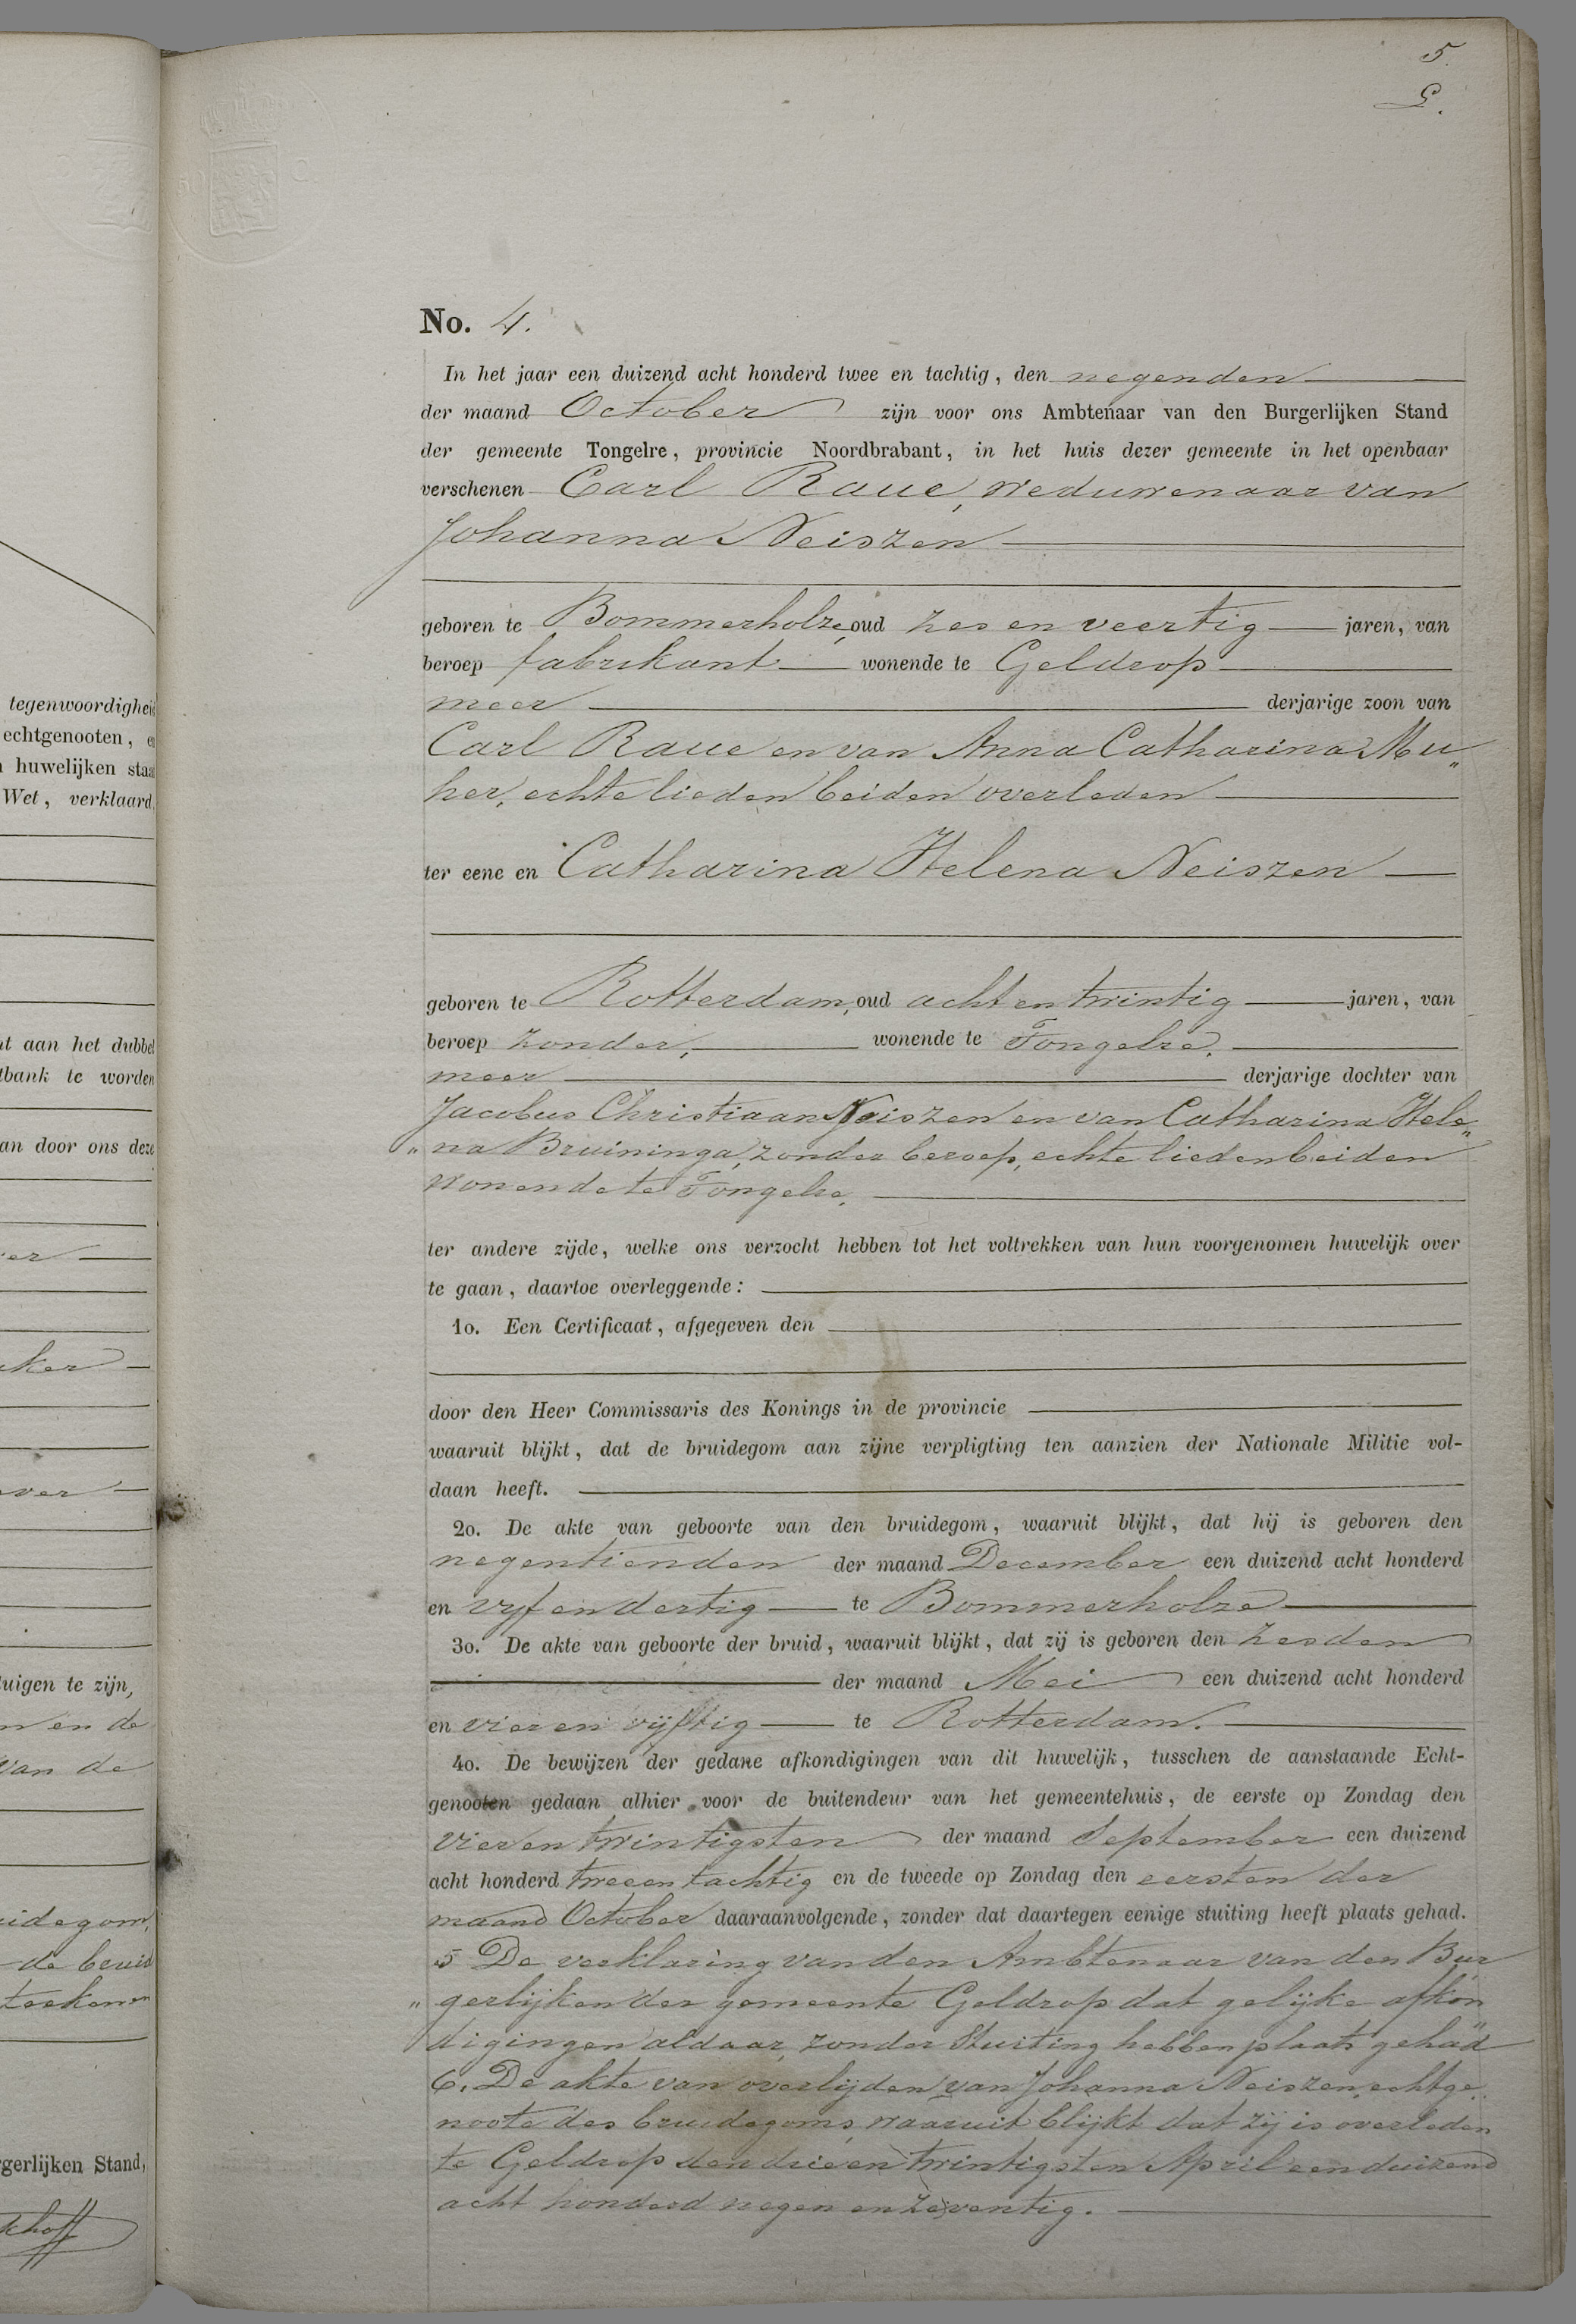 5.
No. 4.
In het jaar een duizend acht honderd twee en tachtig, den negenden
der maand October zijn voor ons Ambtenaar van den Burgerlijken Stand
der gemeente Tongelre, provincie Noordbrabant, in het huis dezer gemeente in het openbaar
verschenen Carl Raue, weduwenaar van
Johanna Neiszen
geboren te Bommerholze, oud zes en veertig jaren, van
beroep fabrikant wonende te Geldrop
meer derjarige zoon van
Carl Raue en van Anna Catharina Mu„
her, echte lieden beiden overleden
ter eene en Catharina Helena Neiszen
geboren te Rotterdam, oud acht en twintig jaren, van
beroep zonder, wonende te Tongelre.
meer derjarige dochter van
Jacobus Christiaan Neiszen en van Catharina Hele„
„na Bruininga, zonder beroep, echte lieden beiden
wonende te Tongelre.
ter andere zijde, welke ons verzocht hebben tot het voltrekken van hun voorgenomen huwelijk over
te gaan, daartoe overleggende:
1o. Een Certificaat, afgegeven den
door den Heer Commissaris des Konings in de provincie
waaruit blijkt, dat de bruidegom aan zijne verpligting ten aanzien der Nationale Militie vol-
daan heeft.
2o. De akte van geboorte van den bruidegom, waaruit blijkt, dat hij is geboren den
negentienden der maand December een duizend acht honderd
en vyf en dertig te Bommerholze
3o. De akte van geboorte der bruid, waaruit blijkt, dat zij is geboren den zesden
der maand Mei een duizend acht honderd
en vier en vijftig te Rotterdam.
4o. De bewijzen der gedane afkondigingen van dit huwelijk, tusschen de aanstaande Echt-
genooten gedaan alhier voor de buitendeur van het gemeentehuis, de eerste op Zondag den
vier en twintigsten der maand September een duizend
acht honderd twee en tachtig en de tweede op Zondag den eersten der
maand October daaraanvolgende, zonder dat daartegen eenige stuiting heeft plaats gehad.
5 De verklaring van den Ambtenaar van den Bur
„gerlijken der gemeente Geldrop dat gelijke afkon„
digingen aldaar, zonder stuiting hebben plaats gehad
6. De akte van overlijden van Johanna Neiszen, echtge„
noote des bruidegoms, waaruit blijkt dat zij is overleden
te Geldrop den drie en twintigsten April een duizend
acht honderd negen en zeventig.
tegenwoordigheid
echtgenooten,
huwelijken staat
Wet, verklaard,
aan het dubbel
tbank te worden
an door ons deze
uigen te zijn,
en de
van de
idegom,
de bruid
teekenen
gerlijken Stand,